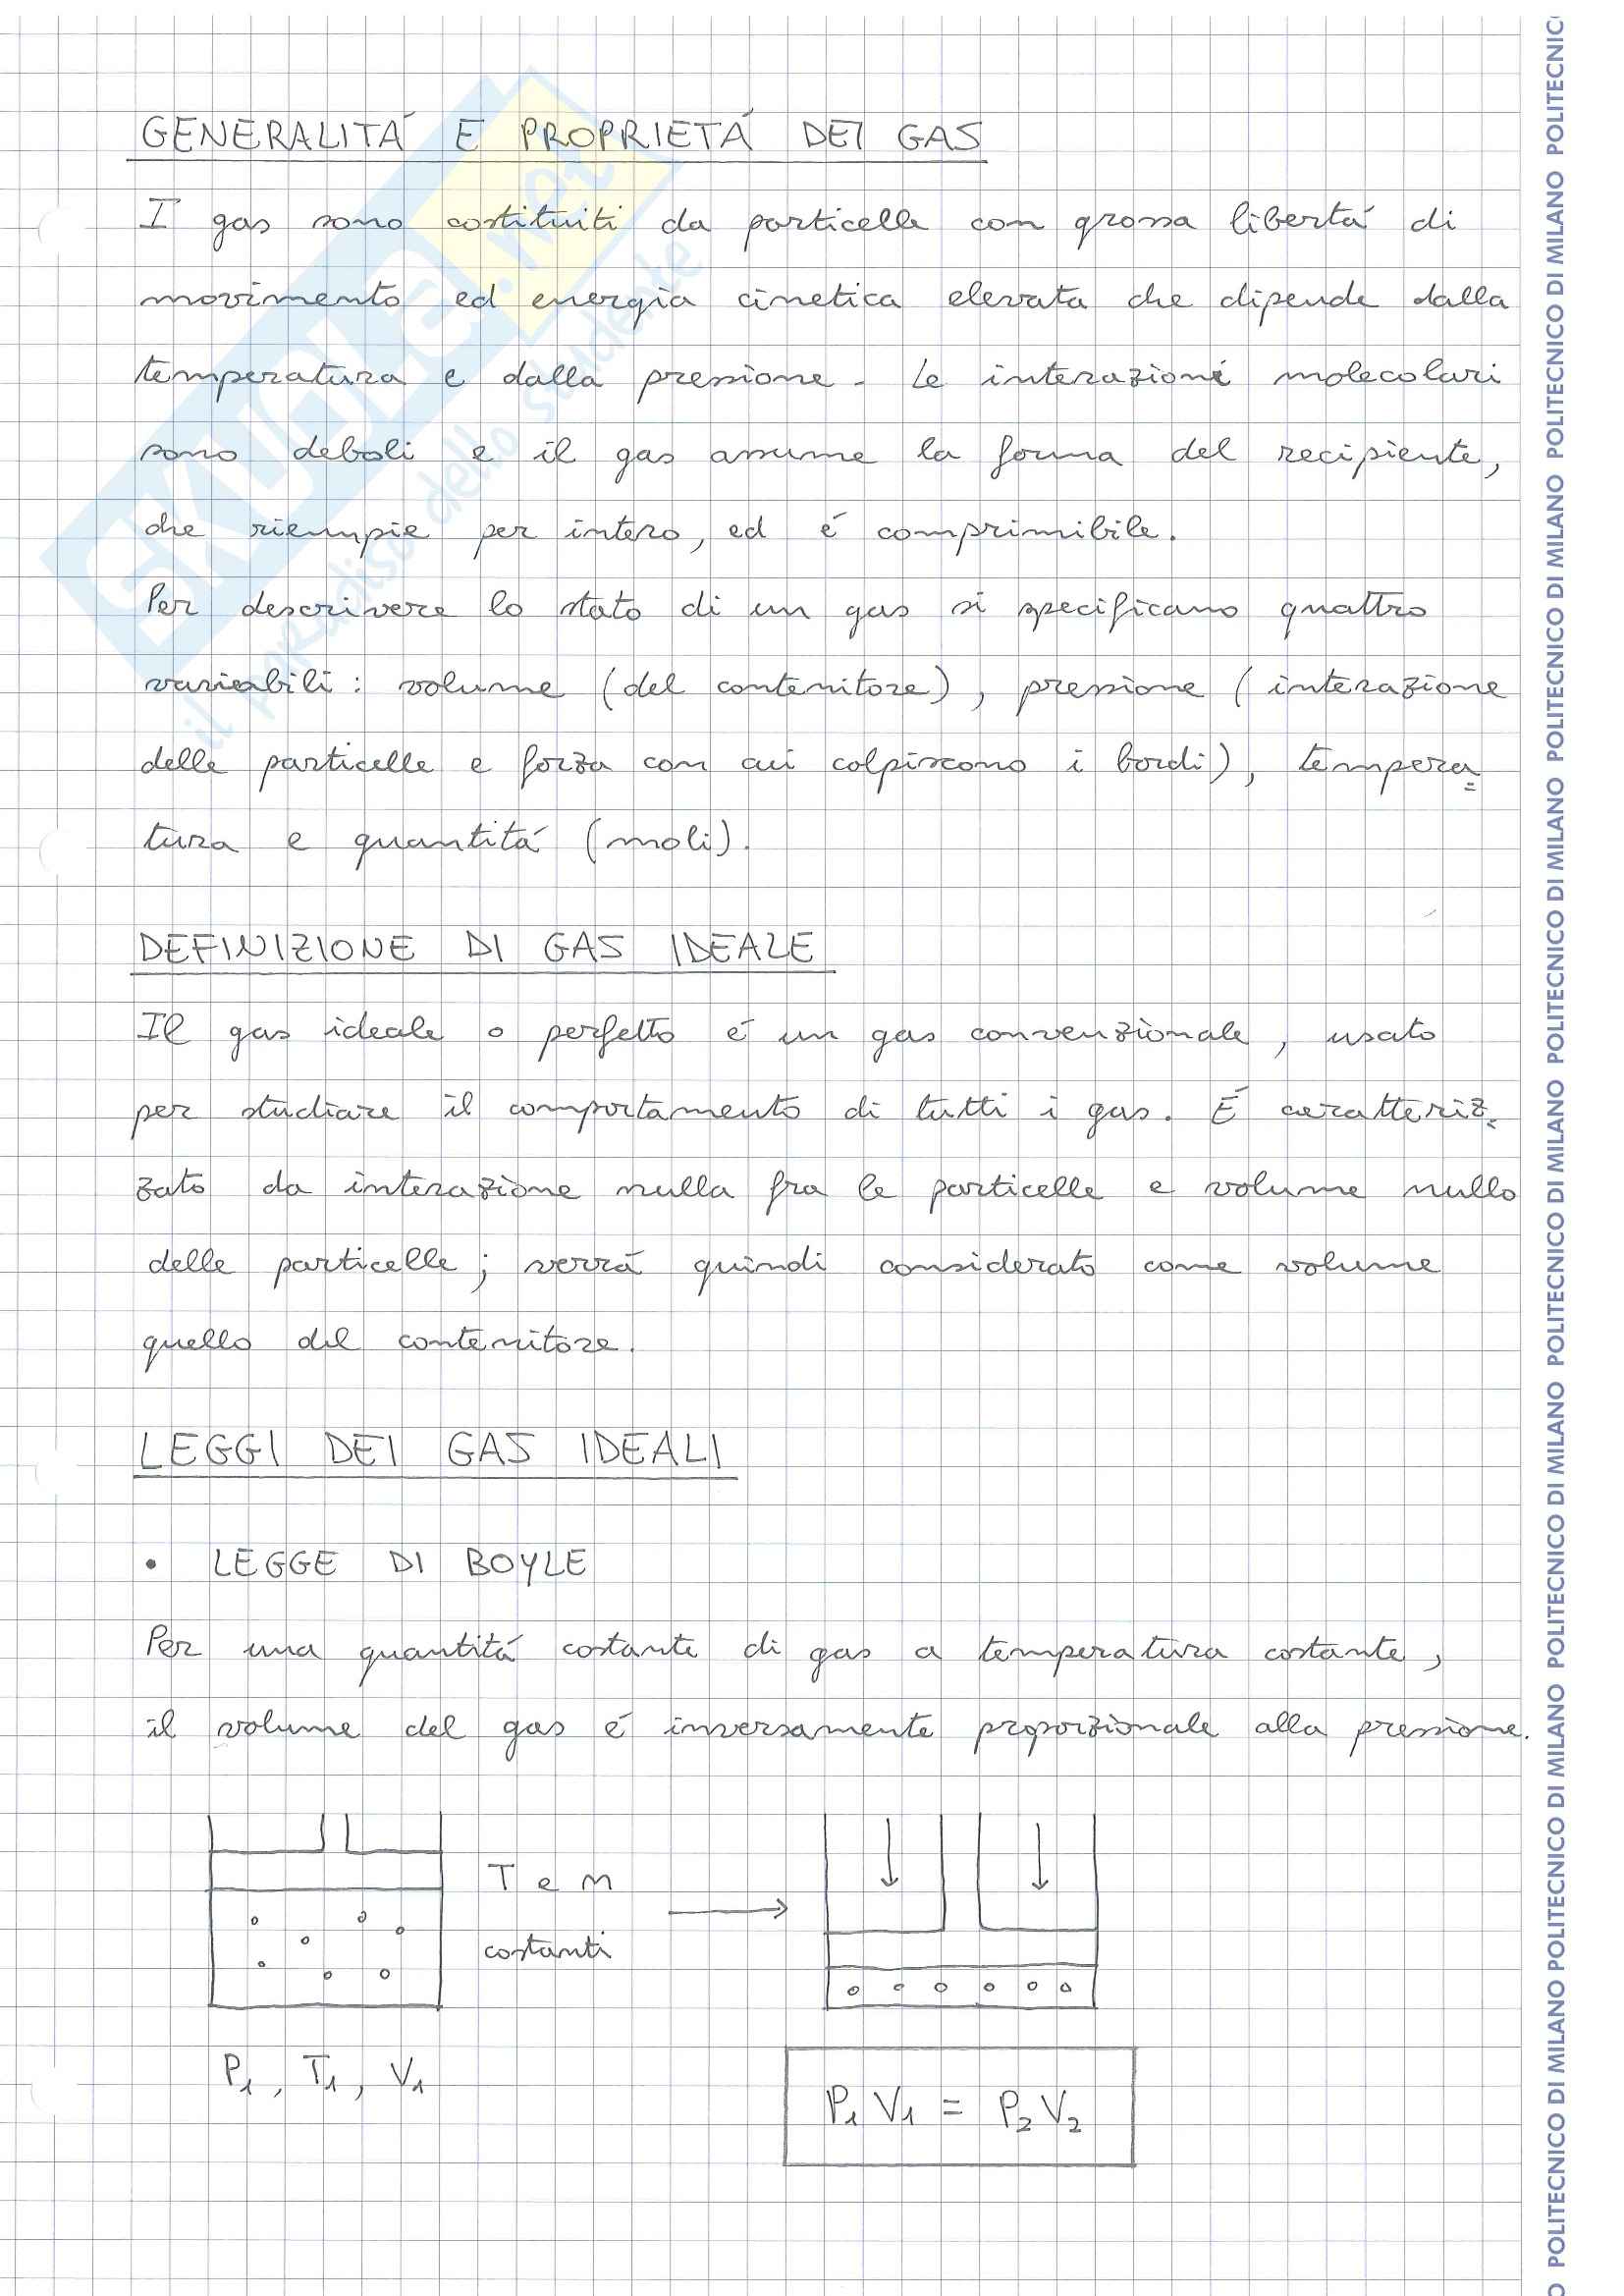 GENERALITÁ E PROPRIETÁ DEI GAS
I gas sono costituiti da particelle con grossa libertá di
movimento ed energia cinetica elevata che dipende dalla
temperatura e dalla pressione. Le interazioni molecolari
sono deboli e il gas assume la forma del recipiente,
che riempie per intero, ed é comprimibile.
Per descrivere lo stato di un gas si specificano quattro
variabili: volume (del contenitore), pressione (interazione
delle particelle e forza con cui colpiscono i bordi), tempera=
tura e quantitá (moli).
DEFINIZIONE DI GAS IDEALE
Il gas ideale o perfetto é un gas convenzionale, usato
per studiare il comportamento di tutti i gas. É caratteriz=
zato da interazione nulla fra le particelle e volume nullo
delle particelle; verrá quindi considerato come volume
quello del contenitore.
LEGGI DEI GAS IDEALI
• LEGGE DI BOYLE
Per una quantitá costante di gas a temperatura costante,
il volume del gas é inversamente proporzionale alla pressione.
T e n
costanti
P₁, T₁, V₁
P₁ V₁ = P₂ V₂
SKUOLA.net
il paradiso dello studente
POLITECNICO DI MILANO POLITECNICO DI MILANO POLITECNICO DI MILANO POLITECNICO DI MILANO POLITECNICO DI MILANO POLITECNICO DI MILANO POLITECNICO DI MILANO POLITECNIC